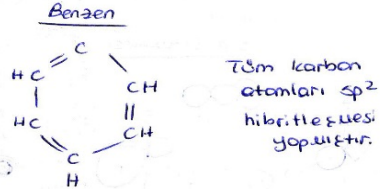 Benzen
C
HC
CH
HC
CH
C
H
Tüm karbon
atomları sp²
hibritleşmesi
yapmıştır.